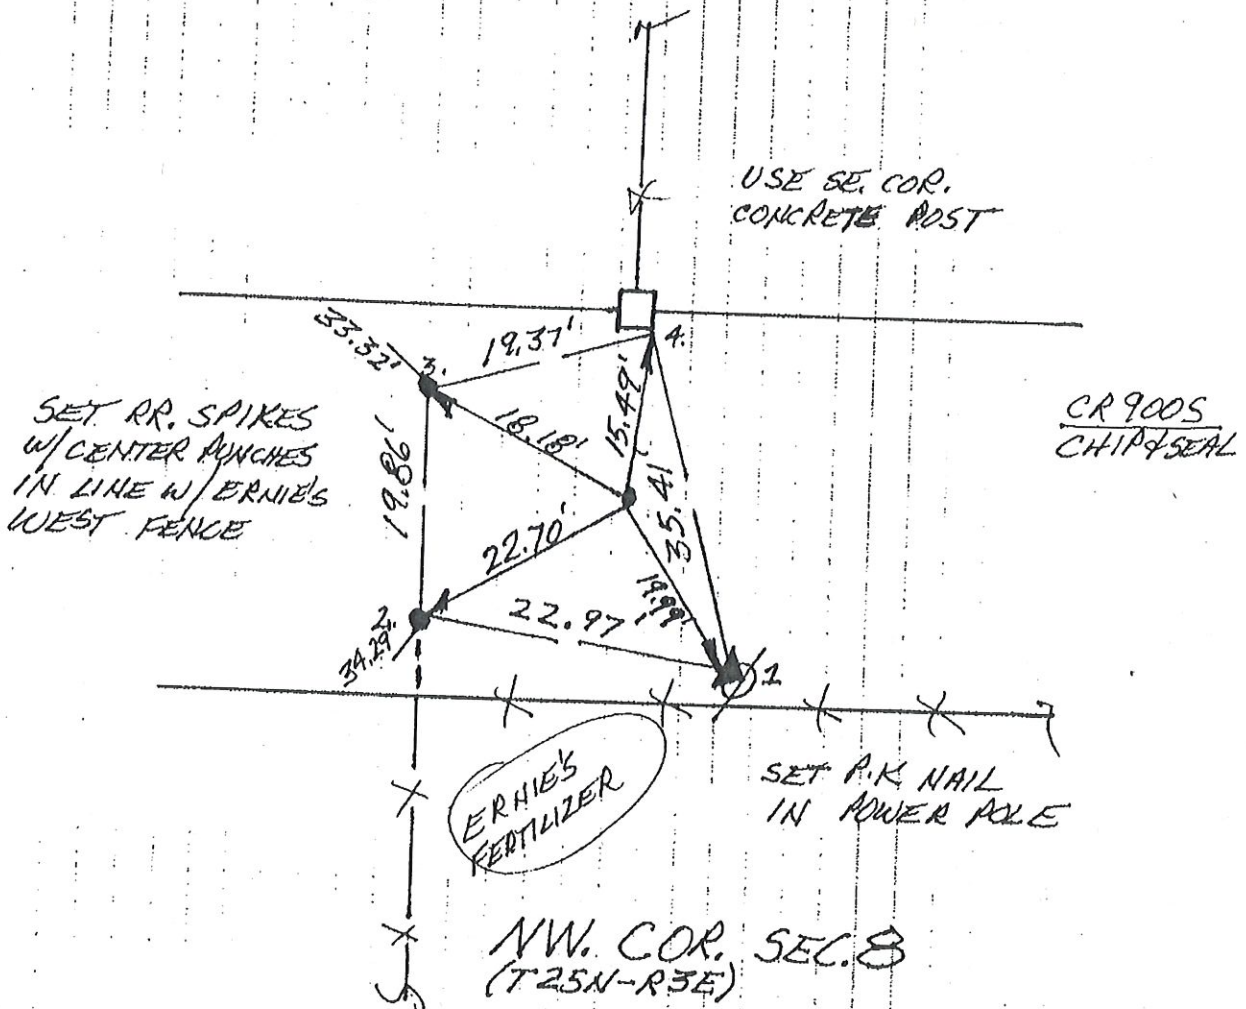 USE SE. COR.
CONCRETE POST
33.32'
3.
19.37'
4.
SET RR. SPIKES
W/CENTER PUNCHES
IN LINE W/ ERNIE'S
WEST FENCE
18.18'
15.49'
CR 900S
CHIP & SEAL
19.86'
35.41'
22.70'
19.99'
2.
22.97'
34.29'
1
ERNIE'S
FERTILIZER
SET P.K NAIL
IN POWER POLE
NW. COR. SEC. 8
(T25N-R3E)